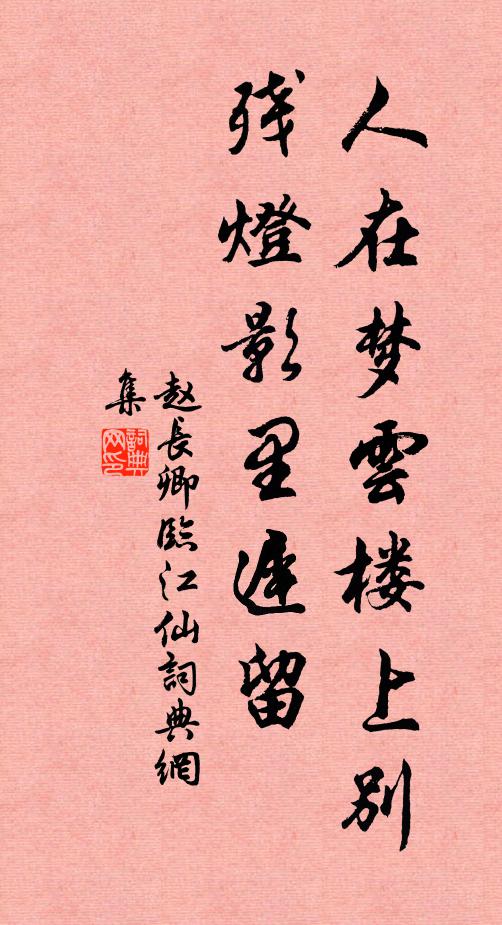 人在梦雲楼上别
残燈影里遲留
赵長卿臨江仙詞典網
集
詞典网印